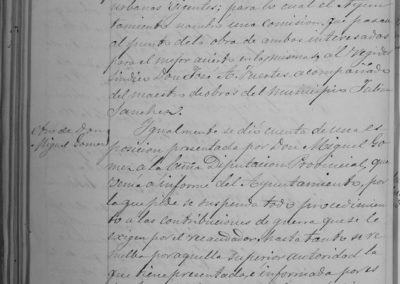 urbanas vigentes; para lo cual el Ayun-
tamiento nombró una comision, que pasara
al punto de la obra de ambos interesados
para el mejor acierto en informar, al Regidor
Síndico Don José A. Puentes acompañado
del maestro de obras del municipio Julian
Sanchez.
Otro de Don
Miguel Gomez
Igualmente se dió cuenta de una es-
posicion presentada por Don Miguel Go-
mez a la Exma Diputacion Provincial, que
venia a informe del Ayuntamiento, por
la que pide se suspenda todo procedimien-
to a las contribuciones de guerra que se le
exigen por el recaudador, hasta tanto se re-
suelba por aquella superior autoridad la
que tiene presentada, e informada por es